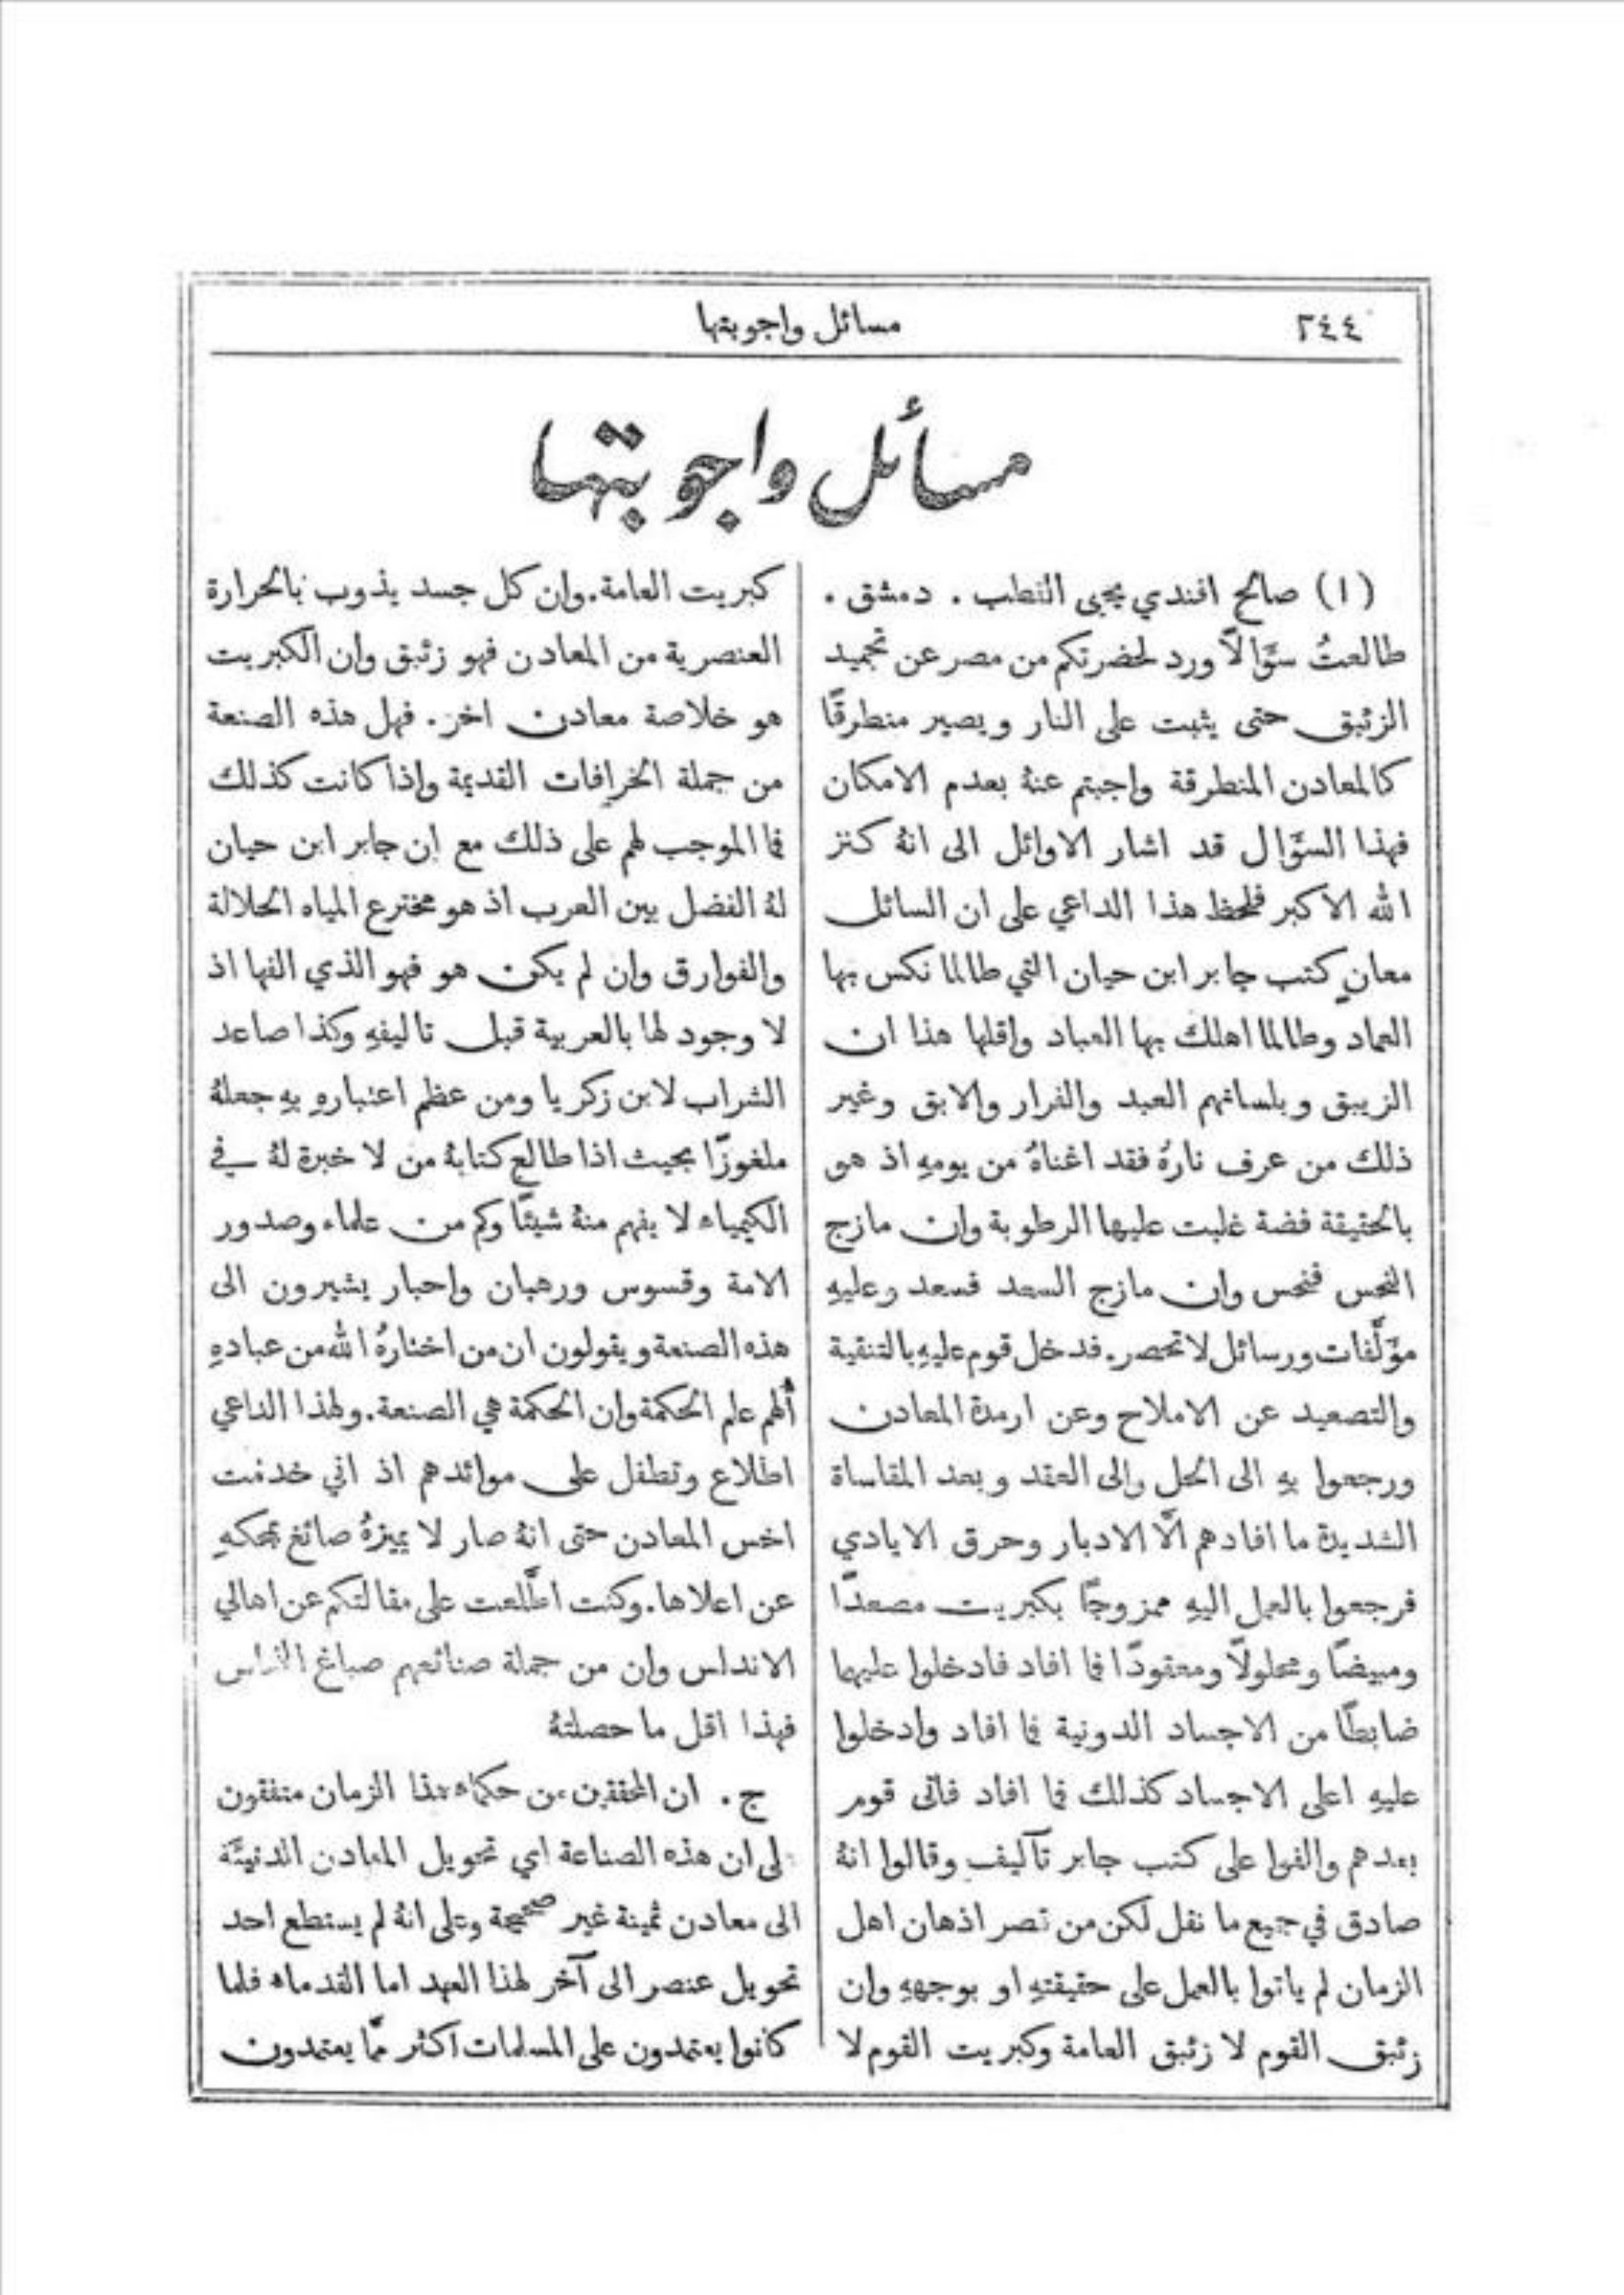 ٢٤٤
مسائل واجوبتها
مسائل واجوبتها
(١) صالح افندي يحيى القطب . دمشق .
طالعتُ سؤَالاً ورد لحضرتكم من مصر عن تجميد
الزئبق حتى يثبت على النار ويصير منطرقًا
كالمعادن المنطرقة واجبتم عنهُ بعدم الامكان
فهذا السؤَال قد اشار الاوائل الى انهُ كنز
الله الاكبر فلحظ هذا الداعي على ان السائل
معانٍ كتب جابر ابن حيان التي طالما نكس بها
العماد وطالما اهلك بها العباد واقلها هذا ان
الزيبق وبلسانهم العبد والفرار والابق وغير
ذلك من عرف نارهُ فقد اغناهُ من يومهِ اذ هو
بالحقيقة فضة غلبت عليها الرطوبة وان مازج
النحس فنحس وان مازج السعد فسعد وعليهِ
مؤَلَّفات ورسائل لا تحصر. فدخل قوم عليهِ بالتنقية
والتصعيد عن الاملاح وعن ارمدة المعادن
ورجعوا بهِ الى الحل والى العقد وبعد المقاساة
الشديدة ما افادهم الَّا الادبار وحرق الايادي
فرجعوا بالعمل اليهِ ممزوجًا بكبريت مصعدًا
ومبيضًا ومحلولاً ومعقودًا فما افاد فادخلوا عليهما
ضابطًا من الاجساد الدونية فما افاد وادخلوا
عليهِ اعلى الاجساد كذلك فما افاد فاتى قوم
بعدهم والفوا على كتب جابر تآليف وقالوا انهُ
صادق في جميع ما نقل لكن من قصر اذهان اهل
الزمان لم ياتوا بالعمل على حقيقتهِ او بوجههِ وان
زئبق القوم لا زئبق العامة وكبريت القوم لا
كبريت العامة. وان كل جسد يذوب بالحرارة
العنصرية من المعادن فهو زئبق وان الكبريت
هو خلاصة معادن اخر. فهل هذه الصنعة
من جملة الخرافات القديمة واذا كانت كذلك
فما الموجب لهم على ذلك مع ان جابر ابن حيان
لهُ الفضل بين العرب اذ هو مخترع المياه الحلالة
والفوارق وان لم يكن هو فهو الذي الفها اذ
لا وجود لها بالعربية قبل تاليفهِ وكذا صاعد
الشراب لابن زكريا ومن عظم اعتبارهِ بهِ جعلهُ
ملغوزًا بحيث اذا طالع كتابهُ من لا خبرة لهُ في
الكيمياء لا يفهم منهُ شيئًا وكم من علماء وصدور
الامة وقسوس ورهبان واحبار يشيرون الى
هذه الصنعة ويقولون ان من اختارهُ الله من عبادهِ
أُلهم علم الحكمة وان الحكمة هي الصنعة. ولهذا الداعي
اطلاع وتطفل على موائدهم اذ اني خدمت
اخس المعادن حتى انهُ صار لا يميزهُ صائغ بمحكهِ
عن اعلاها. وكنت اطَّلعت على مقالتكم عن اهالي
الاندلس وان من جملة صنائعهم صباغ النحاس
فهذا اقل ما حصلتهُ
ج . ان المحققين من حكماء هذا الزمان متفقون
على ان هذه الصناعة اي تحويل المعادن الدنيئَة
الى معادن ثمينة غير صحيحة وعلى انهُ لم يستطع احد
تحويل عنصر الى آخر لهذا العهد اما القدماء فلما
كانوا يعتمدون على المسلمات اكثر ممَّا يعتمدون